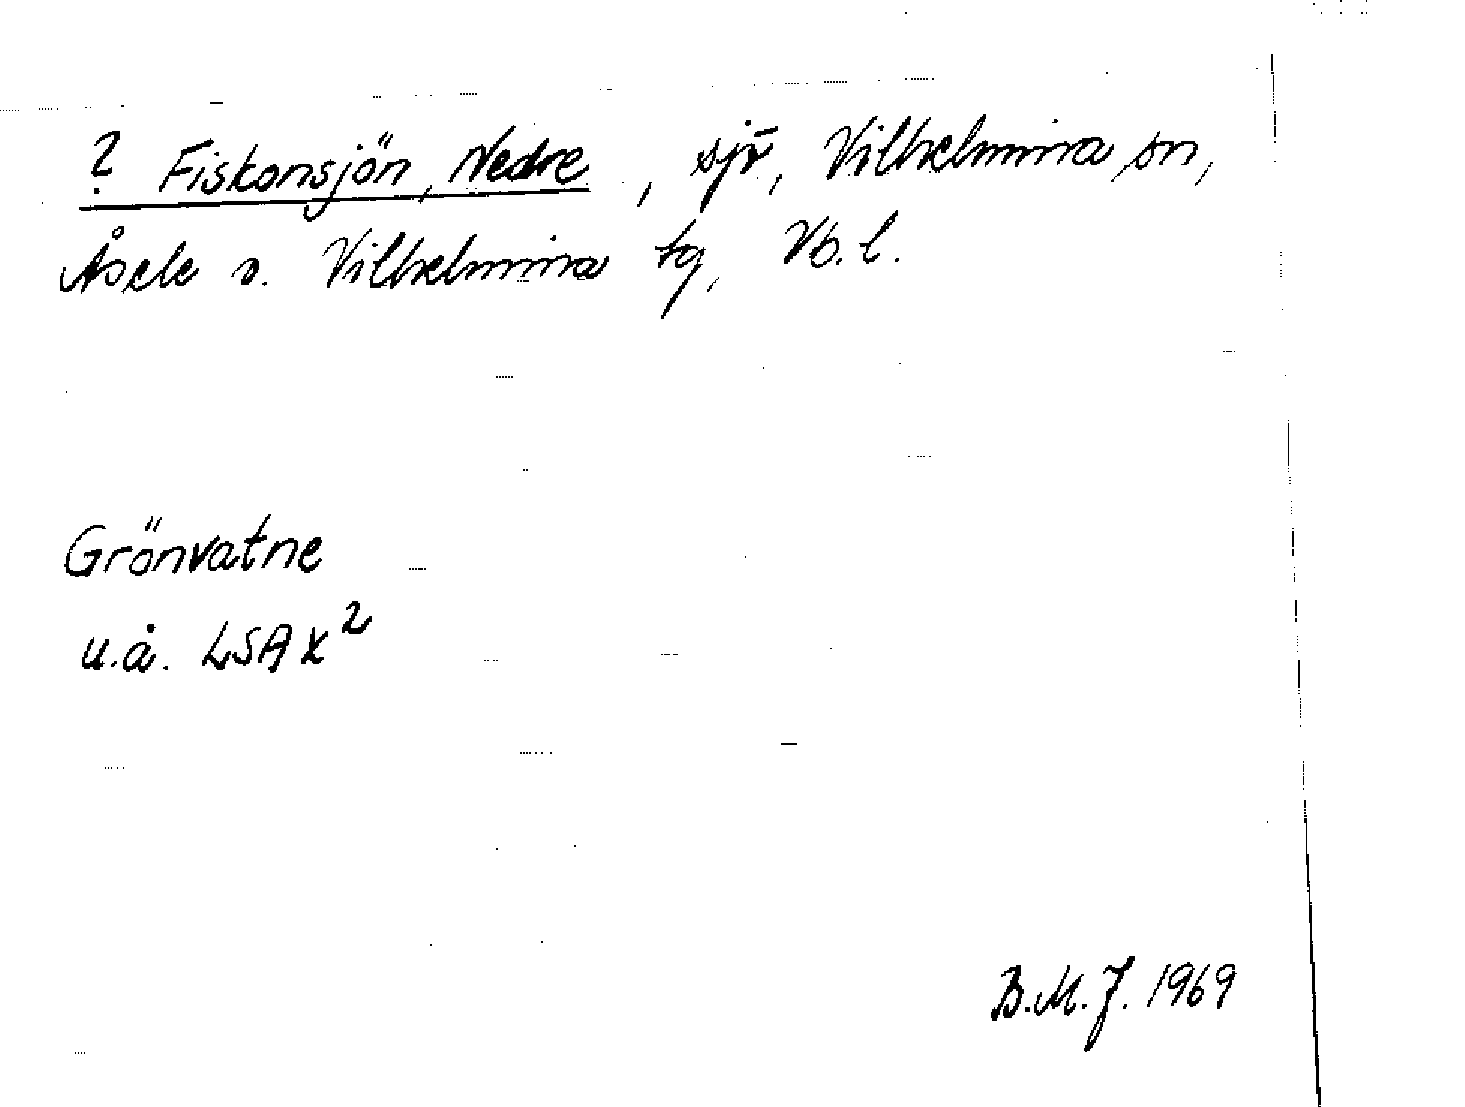 ? Fiskonsjön, Nedre, sjö, Vilhelmina sn,
Åsele o. Vilhelmina tg, Vb. l.
Grönvatne
u.å. LSA X²
B.M.J. 1969